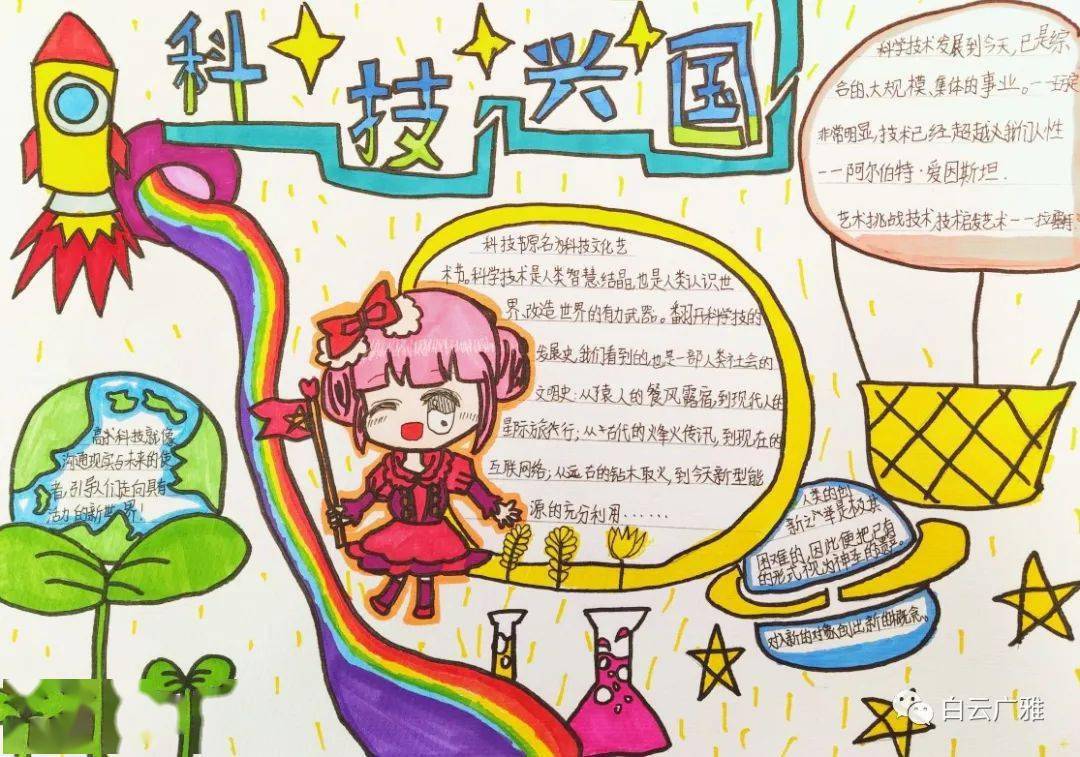 科技兴国
科学技术发展到今天,已是综
合的、大规模、集体的事业。——
非常明显,技术已经超越人我们人性
——阿尔伯特·爱因斯坦.
艺术挑战技术,技术启发艺术——拉塞特
科技节原名为科技文化艺
术节。科学技术是人类智慧结晶,也是人类认识世
界、改造世界的有力武器。翻开科学技的
发展史,我们看到的,也是一部人类社会的
文明史:从猿人的餐风露宿,到现代人的
星际旅行;从古代的烽火传讯,到现在的
互联网络;从远古的钻木取火,到今天新型能
源的充分利用……
高科技就像
沟通现实与未来的使
者,引导人们走向具有
活力的新世界!
人类的创
新之举是极其
困难的,因此便把已有
的形式视为神圣的
对新的对象创出新的概念。
白云广雅